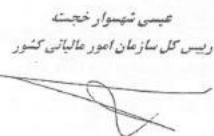 عیسی شهسوار خجسته
رییس کل سازمان امور مالیاتی کشور